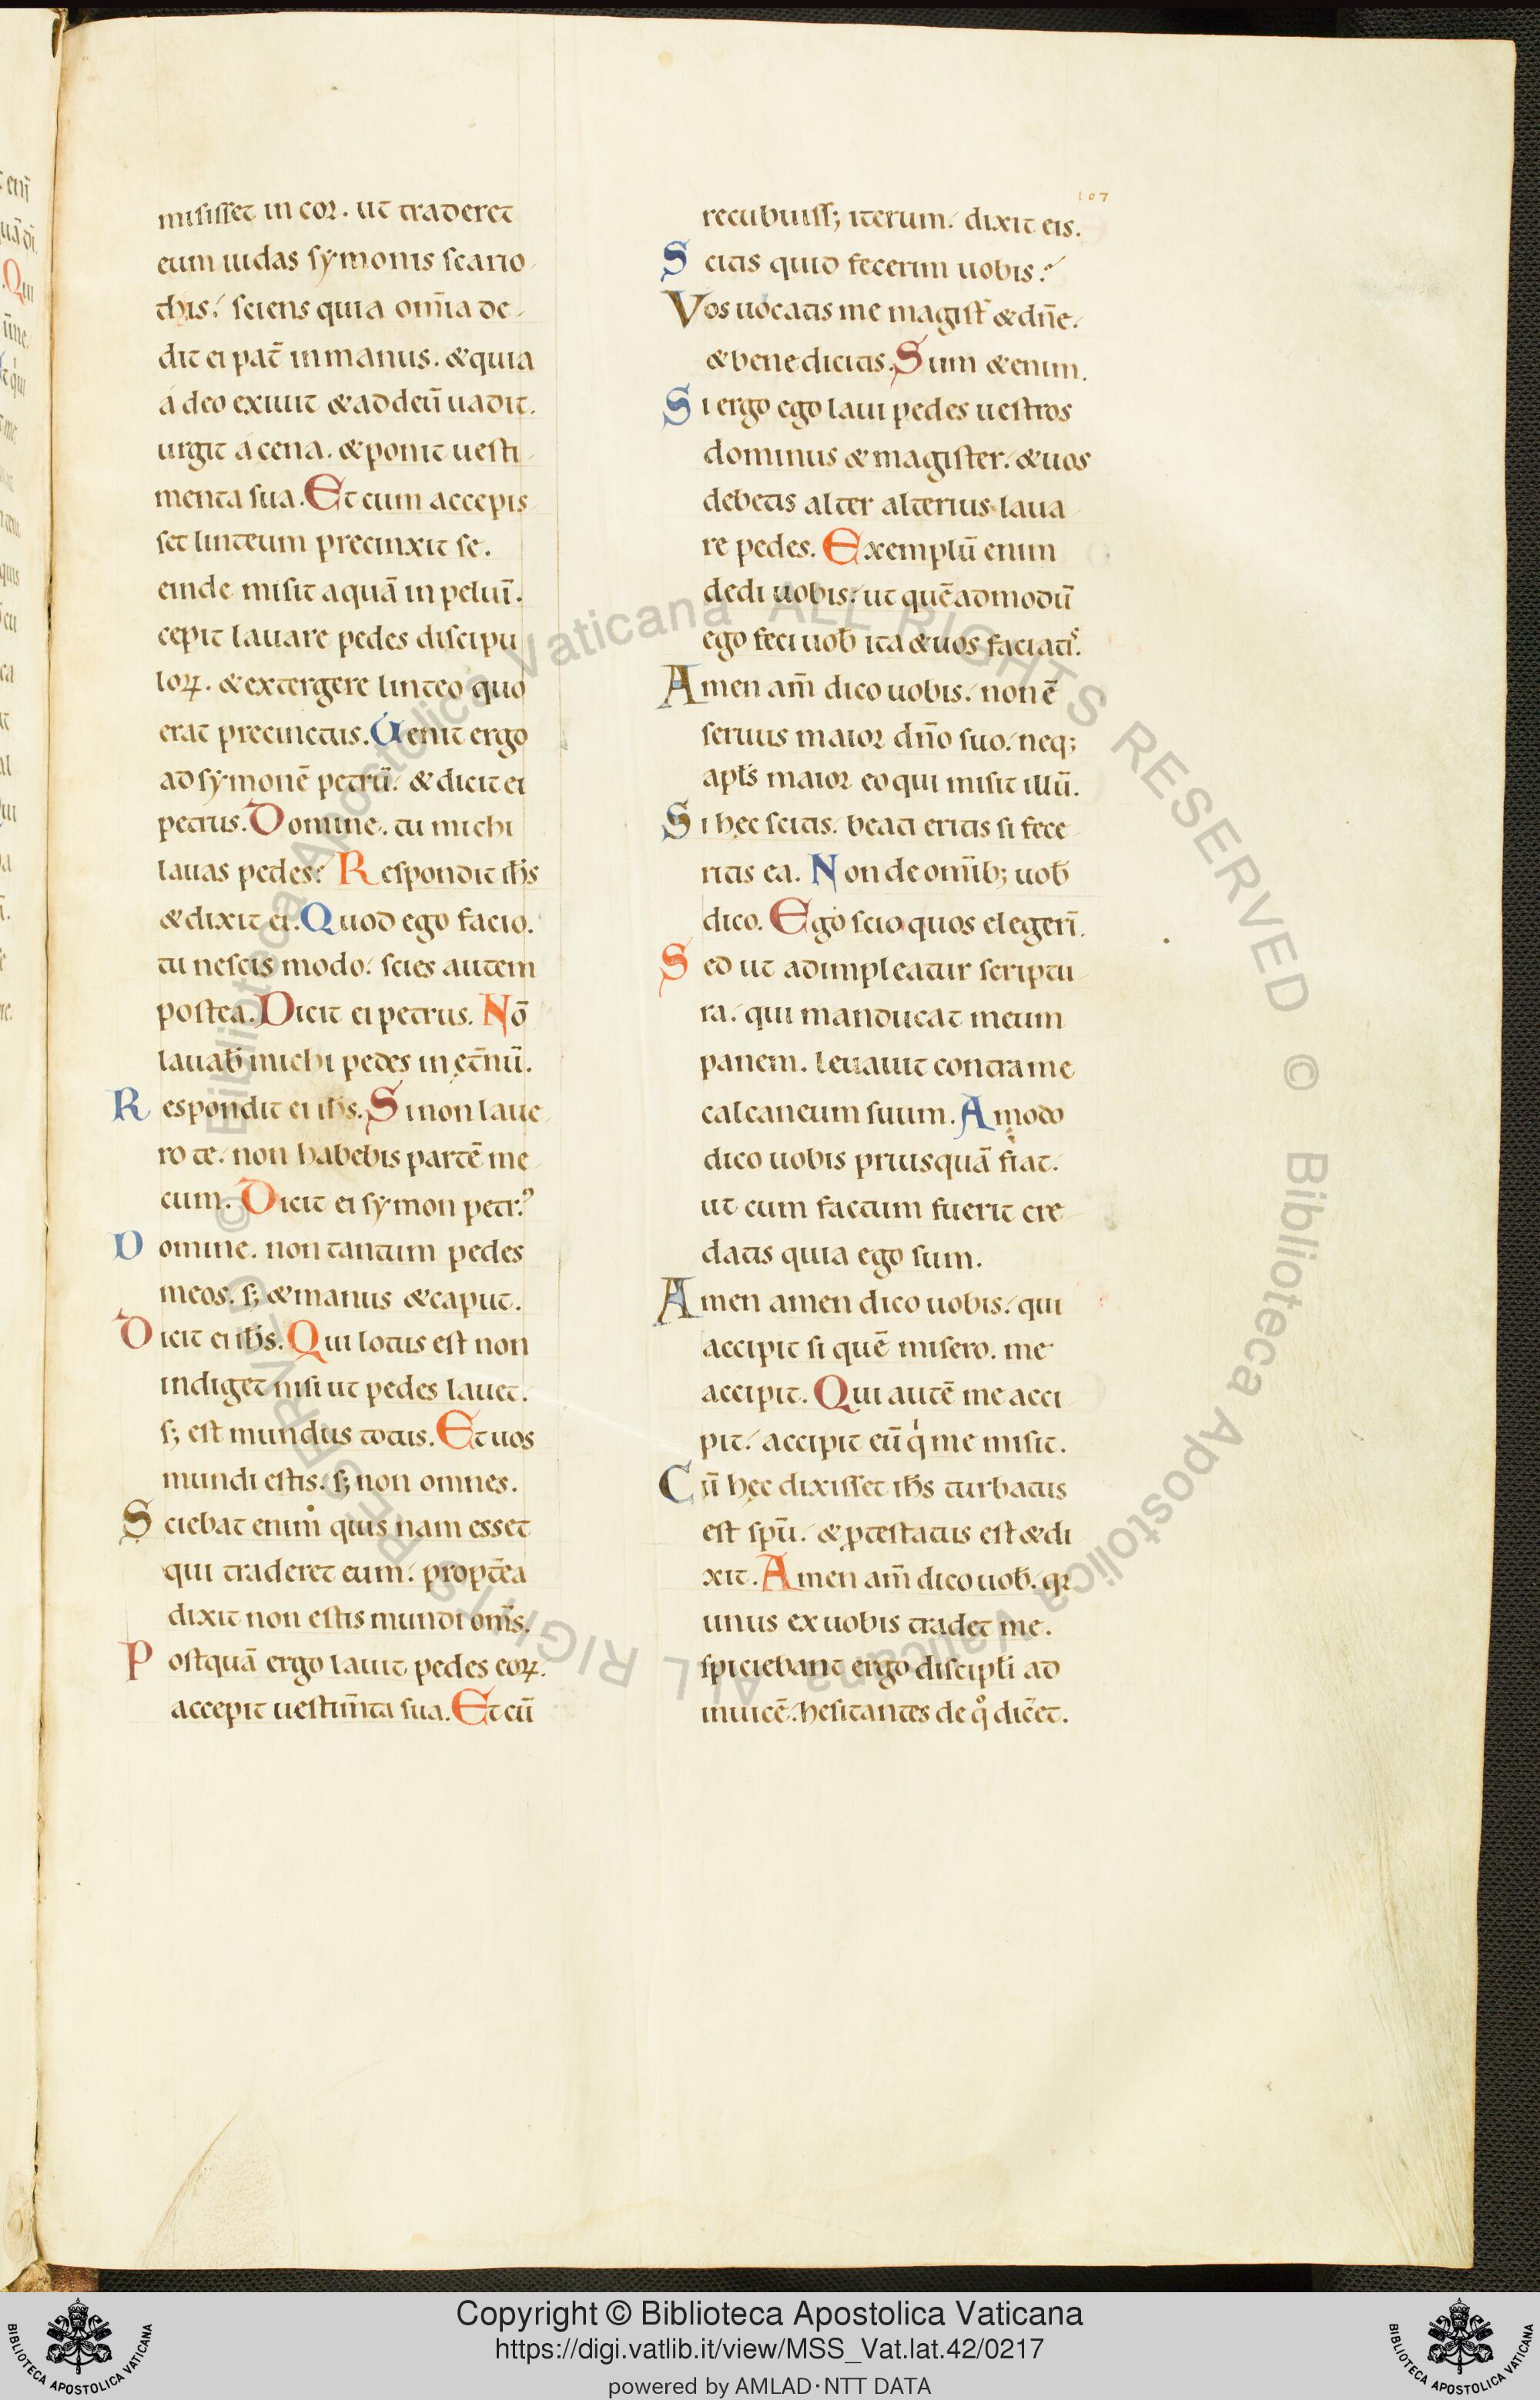 misisset in cor. ut traderet
eum iudas symonis scario
this. sciens quia om̄ia de
dit ei pat̄ in manus. & quia
a deo exiuit & ad deū uadit.
urgit a cena. & ponit uesti
menta sua. Et cum accepis
set linteum precinxit se.
einde misit aquā in peluī.
cepit lauare pedes discipu
loꝝ. & extergere linteo quo
erat precinctus. Uenit ergo
ad symonē petrū. & dicit ei
petrus. Domine. tu michi
lauas pedes? Respondit ih̄s
& dixit ei. Quod ego facio.
tu nescis modo. scies autem
postea. Dicit ei petrus. Nō
lauab̄ michi pedes in et̄nū.
Respondit ei ih̄s. Si non laue
ro te. non habebis partē me
cum. Dicit ei symon petr᾽
Domine. non tantum pedes
meos. s; & manus & caput.
Dicit ei ih̄s. Qui lotus est non
indiget nisi ut pedes lauet.
s; est mundus totus. Et uos
mundi estis. s; non omnes.
Sciebat enim quis nam esset
qui traderet eum. propt̄ea
dixit non estis mundi om̄s.
Postquā ergo lauit pedes eoꝝ.
accepit uestim̄ta sua. Et cū
107
recubuiss; iterum. dixit eis.
Scitis quid fecerim uobis?
Vos uocatis me magist̄ & dn̄e.
& bene dicitis. Sum & enim.
Si ergo ego laui pedes uestros
dominus & magister. & uos
debetis alter alterius laua
re pedes. Exemplū enim
dedi uobis. ut quēadmodū
ego feci uob̄ ita & uos faciatꝭ.
Amen am̄ dico uobis. non ē
seruus maior dn̄o suo. neq;
apl̄s maior eo qui misit illū.
Si hęc scitis. beati eritis si fece
ritis ea. Non de om̄ib; uob̄
dico. Ego scio quos elegerī.
Sed ut adimpleatur scriptu
ra. qui manducat meum
panem. leuauit contra me
calcaneum suum. Amodo
dico uobis priusquā fiat.
ut cum factum fuerit cre
datis quia ego sum.
Amen amen dico uobis. qui
accipit si quē misero. me
accipit. Qui autē me acci
pit. accipit eū qͥ me misit.
Cū hęc dixisset ih̄s turbatus
est sp̄u. & ꝓtestatus est & di
xit. Amen am̄ dico uob̄. qꝛ
unus ex uobis tradet me.
spiciebant ergo discipl̄i ad
inuicē. hesitantes de qͦ dic̄et.
Copyright © Biblioteca Apostolica Vaticana
https://digi.vatlib.it/view/MSS_Vat.lat.42/0217
powered by AMLAD·NTT DATA
BIBLIOTECA APOSTOLICA VATICANA
BIBLIOTECA APOSTOLICA VATICANA
© Biblioteca Apostolica Vaticana ALL RIGHTS RESERVED © Biblioteca Apostolica Vaticana ALL RIGHTS RESERVED